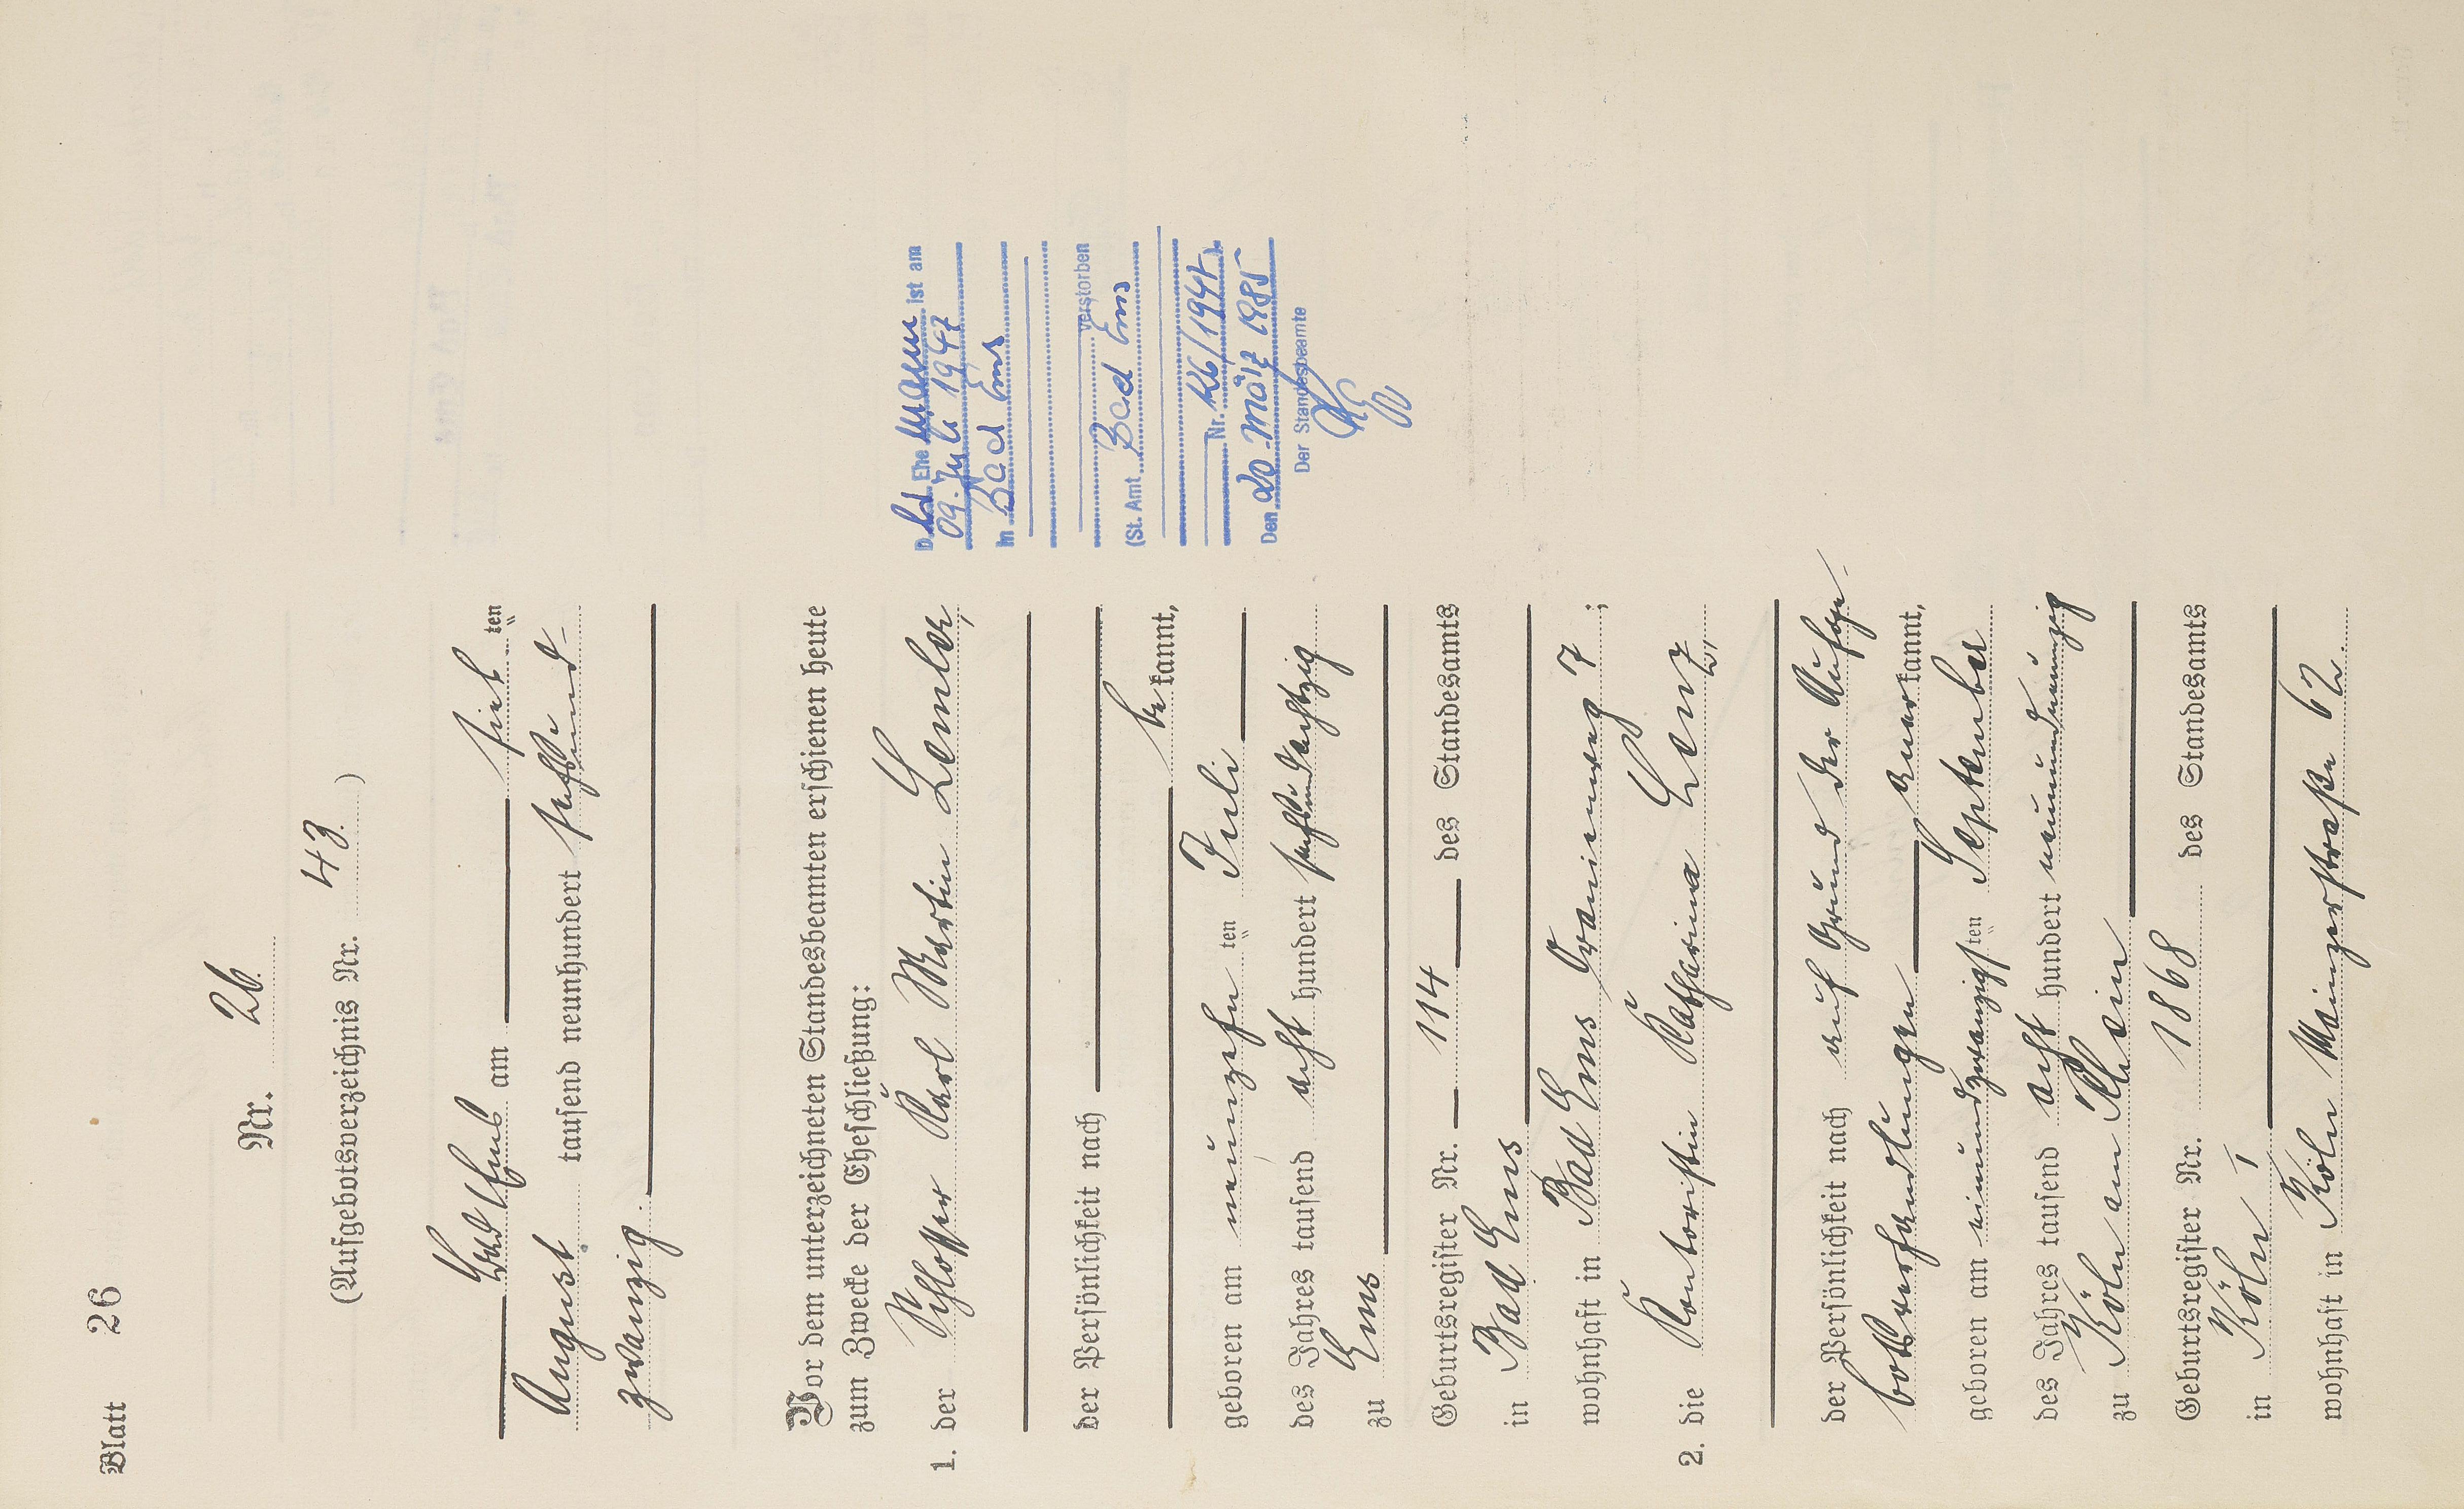 Blatt 26
Nr. 26.
(Aufgebotsverzeichnis Nr. 43.)
Bad Ems am fünf ten
August tausend neunhundert fünfund-
zwanzig.
Vor dem unterzeichneten Standesbeamten erschienen heute
zum Zwecke der Eheschließung:
1. der Schlosser Karl Martin Lemler,
der Persönlichkeit nach
be kannt,
geboren am neunzehn ten Juli
des Jahres tausend acht hundert fünfundachtzig
zu Ems
Geburtsregister Nr. 114 des Standesamts
in Bad Ems
wohnhaft in Bad Ems Oranienweg 7;
2. die Kontoristin Katharina Lenz,
der Persönlichkeit nach auf Grund der Aufge-
botsverhandlungen anerkannt,
geboren am einundzwanzigsten September
des Jahres tausend acht hundert neunundneunzig
zu Köln am Rhein
Geburtsregister Nr. 1868 des Standesamts
in Köln I
wohnhaft in Köln Mainzerstraße 62.
Der Ehemann ist am
09. Juli 1947
in Bad Ems
verstorben
(St. Amt Bad Ems
Nr. 126/1947).
Den 20. März 1985
Der Standesbeamte